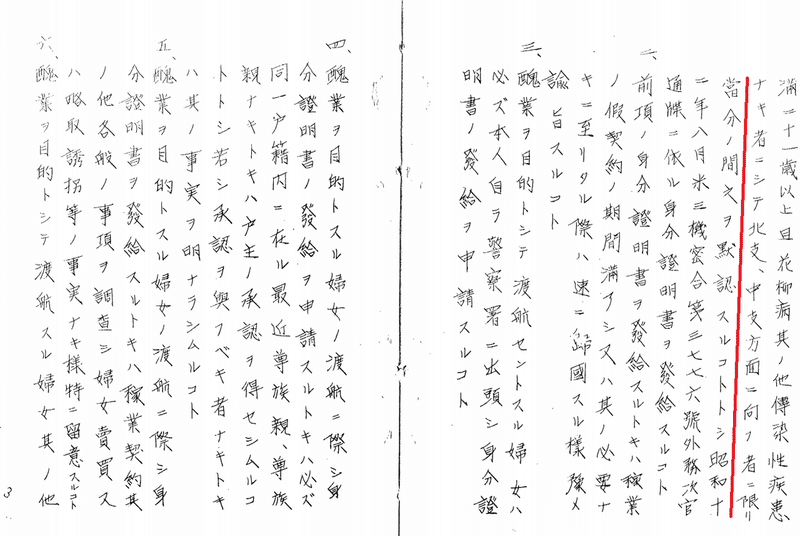 満二十一歳以上且花柳病其ノ他傳染性疾患
ナキ者ニシテ北支、中支方面ニ向フ者ニ限リ
當分ノ間之ヲ黙認スルコトトシ昭和十
二年八月米三機密合第三七七六號外務次官
通牒ニ依ル身分證明書ヲ發給スルコト
二、前項ノ身分證明書ヲ發給スルトキハ稼業
ノ假契約ノ期間満了シ又ハ其ノ必要ナ
キニ至リタル際ハ速ニ歸國スル様豫メ
諭旨スルコト
三、醜業ヲ目的トシテ渡航セントスル婦女ハ
必ズ本人自ラ警察署ニ出頭シ身分證
明書ノ發給ヲ申請スルコト
四、醜業ヲ目的トスル婦女ノ渡航ニ際シ身
分證明書ノ發給ヲ申請スルトキハ必ズ
同一戸籍内ニ在ル最近尊族親、尊族
親ナキトキハ戸主ノ承認ヲ得セシムルコ
トトシ若シ承認ヲ與フベキ者ナキトキ
ハ其ノ事実ヲ明ナラシムルコト
五、醜業ヲ目的トスル婦女ノ渡航ニ際シ身
分證明書ヲ發給スルトキハ稼業契約其
ノ他各般ノ事項ヲ調査シ婦女賣買又
ハ略取誘拐等ノ事実ナキ様特ニ留意スルコト
六、醜業ヲ目的トシテ渡航スル婦女其ノ他
3